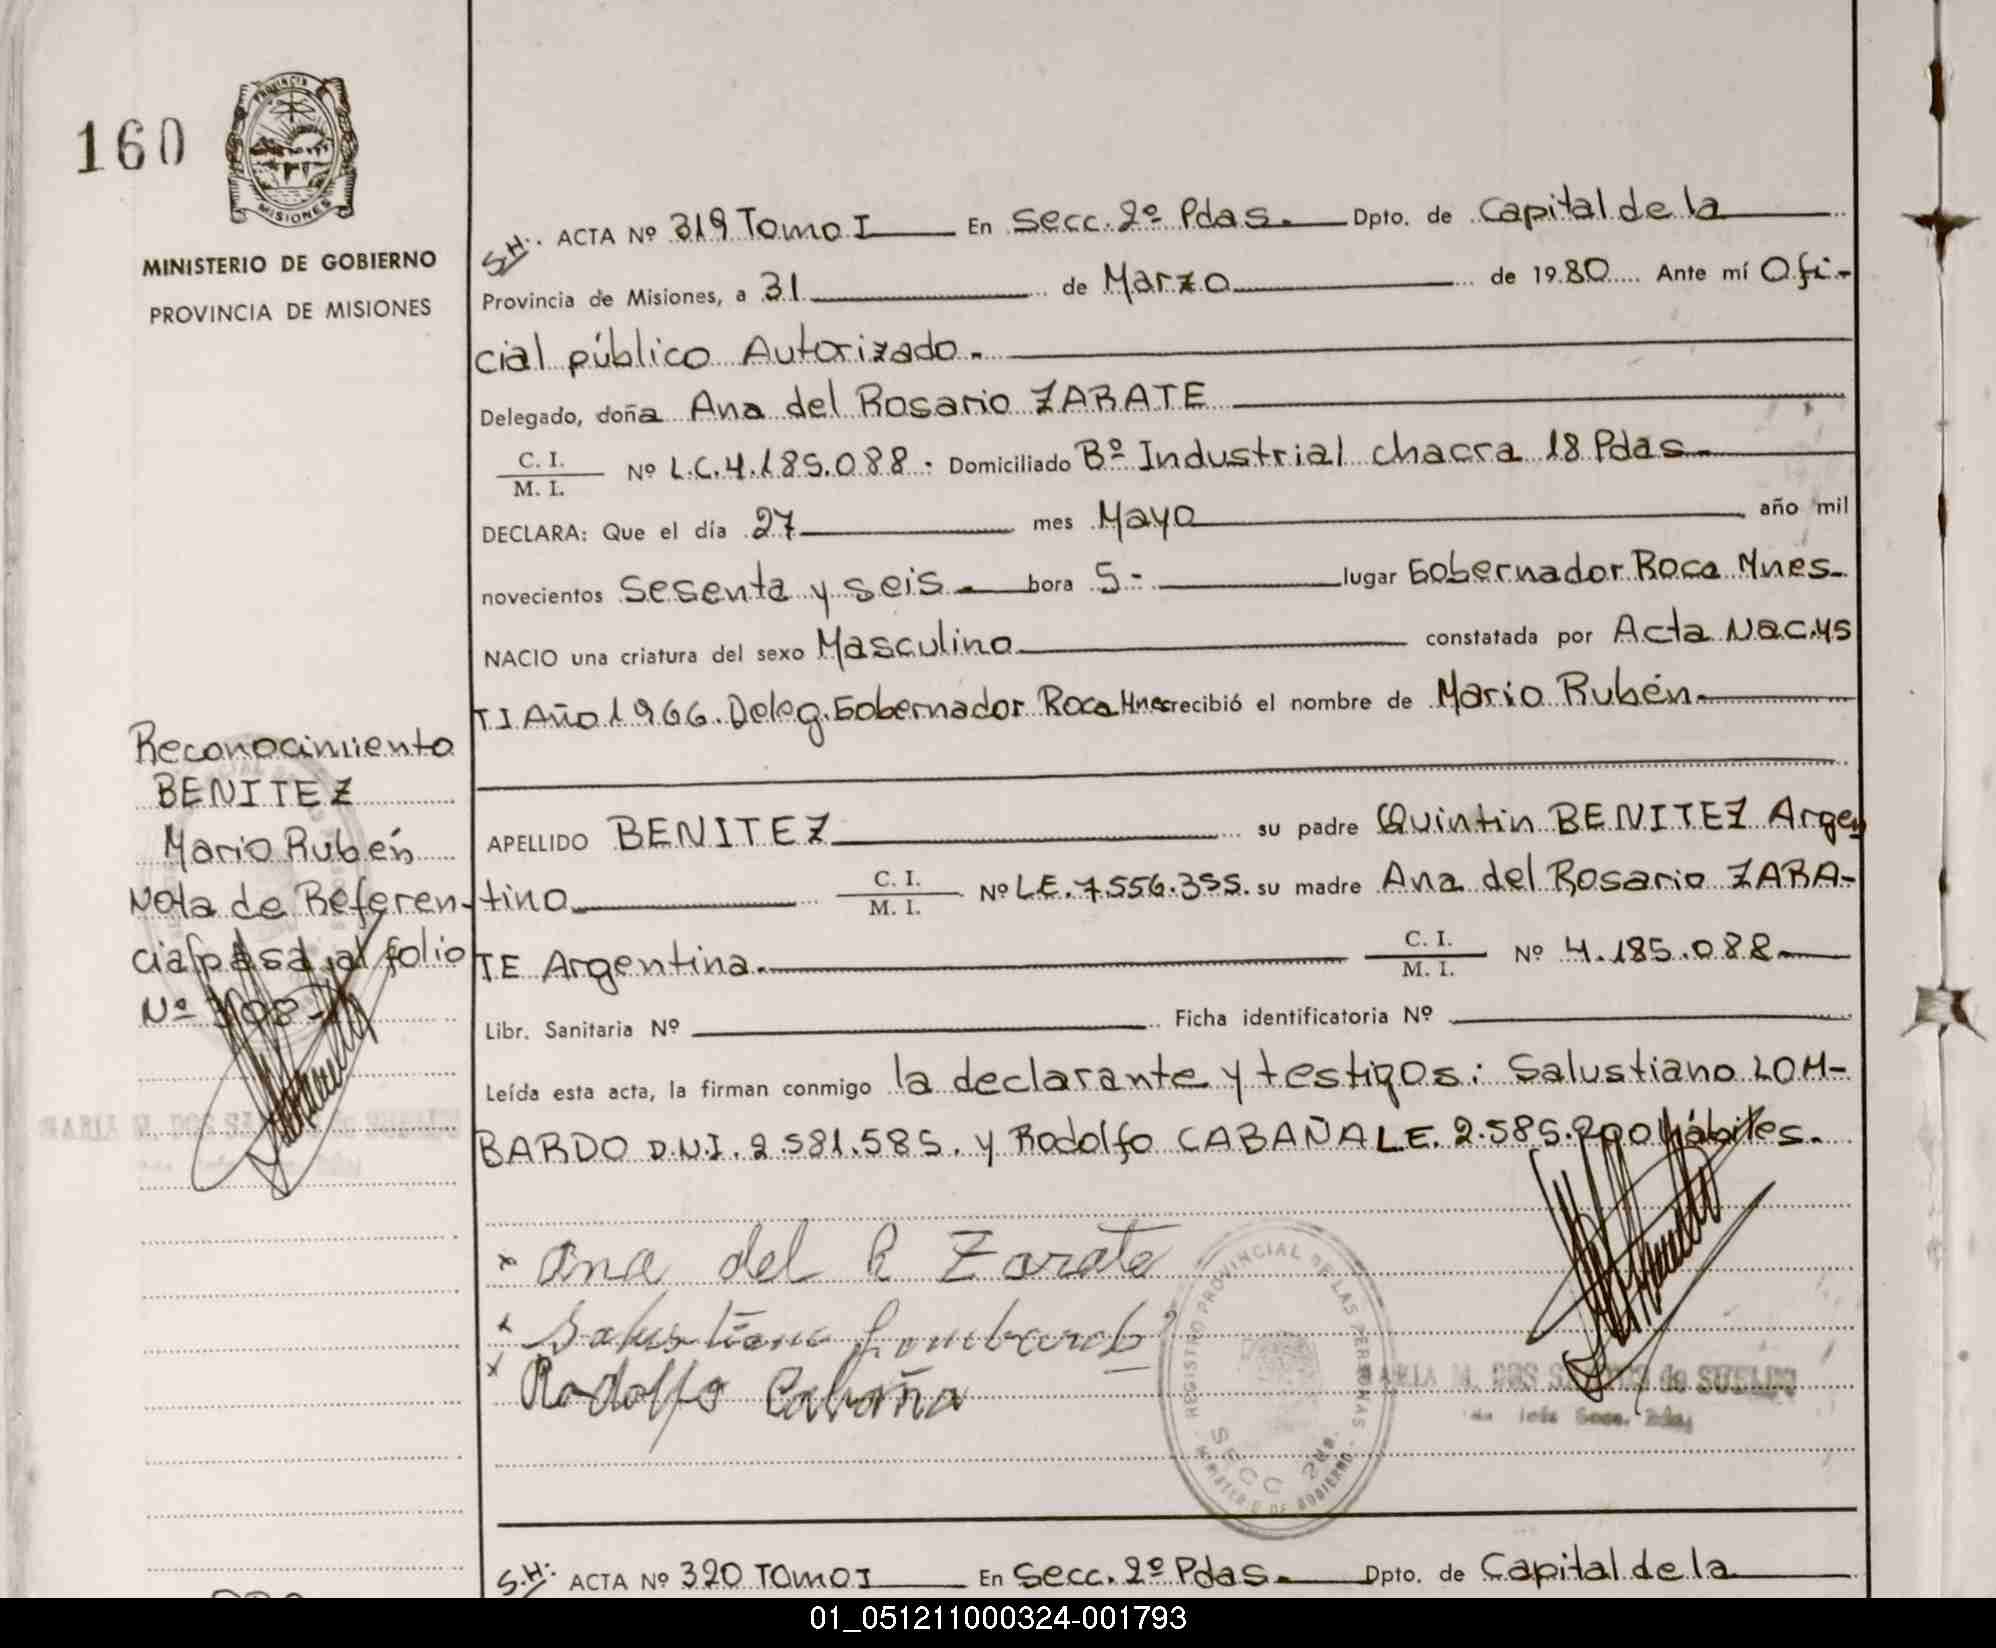 160
PROVINCIA
MISIONES
MINISTERIO DE GOBIERNO
PROVINCIA DE MISIONES
S.H: ACTA Nº 319 Tomo I En Secc. 2º Pdas. Dpto. de Capital de la
Provincia de Misiones, a 31 de Marzo de 1980 Ante mí Ofi-
cial público Autorizado.
Delegado, doña Ana del Rosario ZARATE
C. I.
M. I.
Nº L.C. 4.185.088. Domiciliado Bº Industrial chacra 18 Pdas.
DECLARA: Que el día 27 mes Mayo año mil
novecientos Sesenta y seis. hora 5- lugar Gobernador Roca Mnes.
NACIO una criatura del sexo Masculino constatada por Acta Nac. 45
TI Año 1966. Deleg. Gobernador Roca Mnes recibió el nombre de Mario Rubén
APELLIDO BENITEZ su padre Quintin BENITEZ Argen
tino C. I.
M. I.
Nº LE. 7.556.355. su madre Ana del Rosario ZARA-
TE Argentina. C. I.
M. I.
Nº 4.185.088
Libr. Sanitaria Nº Ficha identificatoria Nº
Leída esta acta, la firman conmigo la declarante y testigos: Salustiano LOM-
BARDO D.N.I. 2.581.585. y Rodolfo CABAÑA LE. 2.585.200 hábiles.
Reconocimiento
BENITEZ
Mario Rubén
Nota de Referen-
cia pasa al folio
Nº 308
x Ana del R Zarate
x Salustiano Lombardo
x Rodolfo Cabaña
REGISTRO PROVINCIAL DE LAS PERSONAS
SECC 2da.
MINISTERIO DE GOBIERNO
MARIA M. DOS SANTOS de
S.H: ACTA Nº 320 Tomo I En Secc. 2º Pdas. Dpto. de Capital de la
01_051211000324-001793